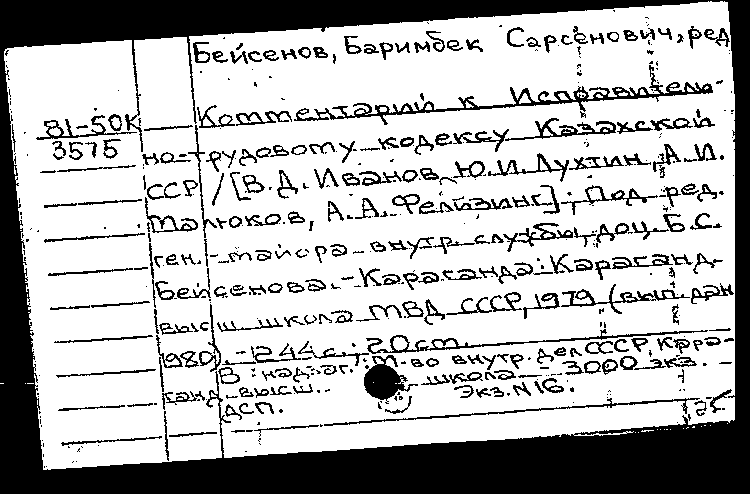 Бейсенов, Баримбек Сарсенович, ред
81-50К
3575
Комментарий к Исправитель-
но-трудовому кодексу Казахской
ССР / [В.Д. Иванов, Ю.И. Лухтин, А.И.
Малюков, А.А. Фельзинг]; Под ред.
ген.-майора внутр. службы, доц. Б.С.
Бейсенова. - Караганда: Караганд.
высш. школа МВД СССР, 1979 (вып. дан
1980). - 244 с.; 20 см.
В надзаг.: М-во внутр. дел СССР, Кара-
ганд. высш. школа - 3000 экз.
ДСП. Экз. N16.